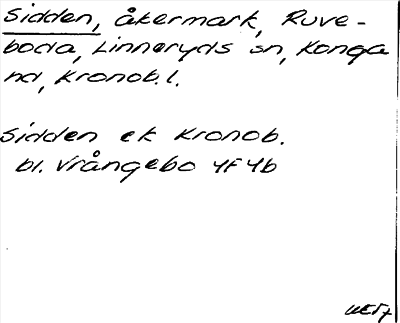 Sidden, åkermark, Ruve-
boda, Linneryds sn, Konga
hd, Kronob.l.
Sidden ek Kronob.
bl. Vrångebo 4F4b